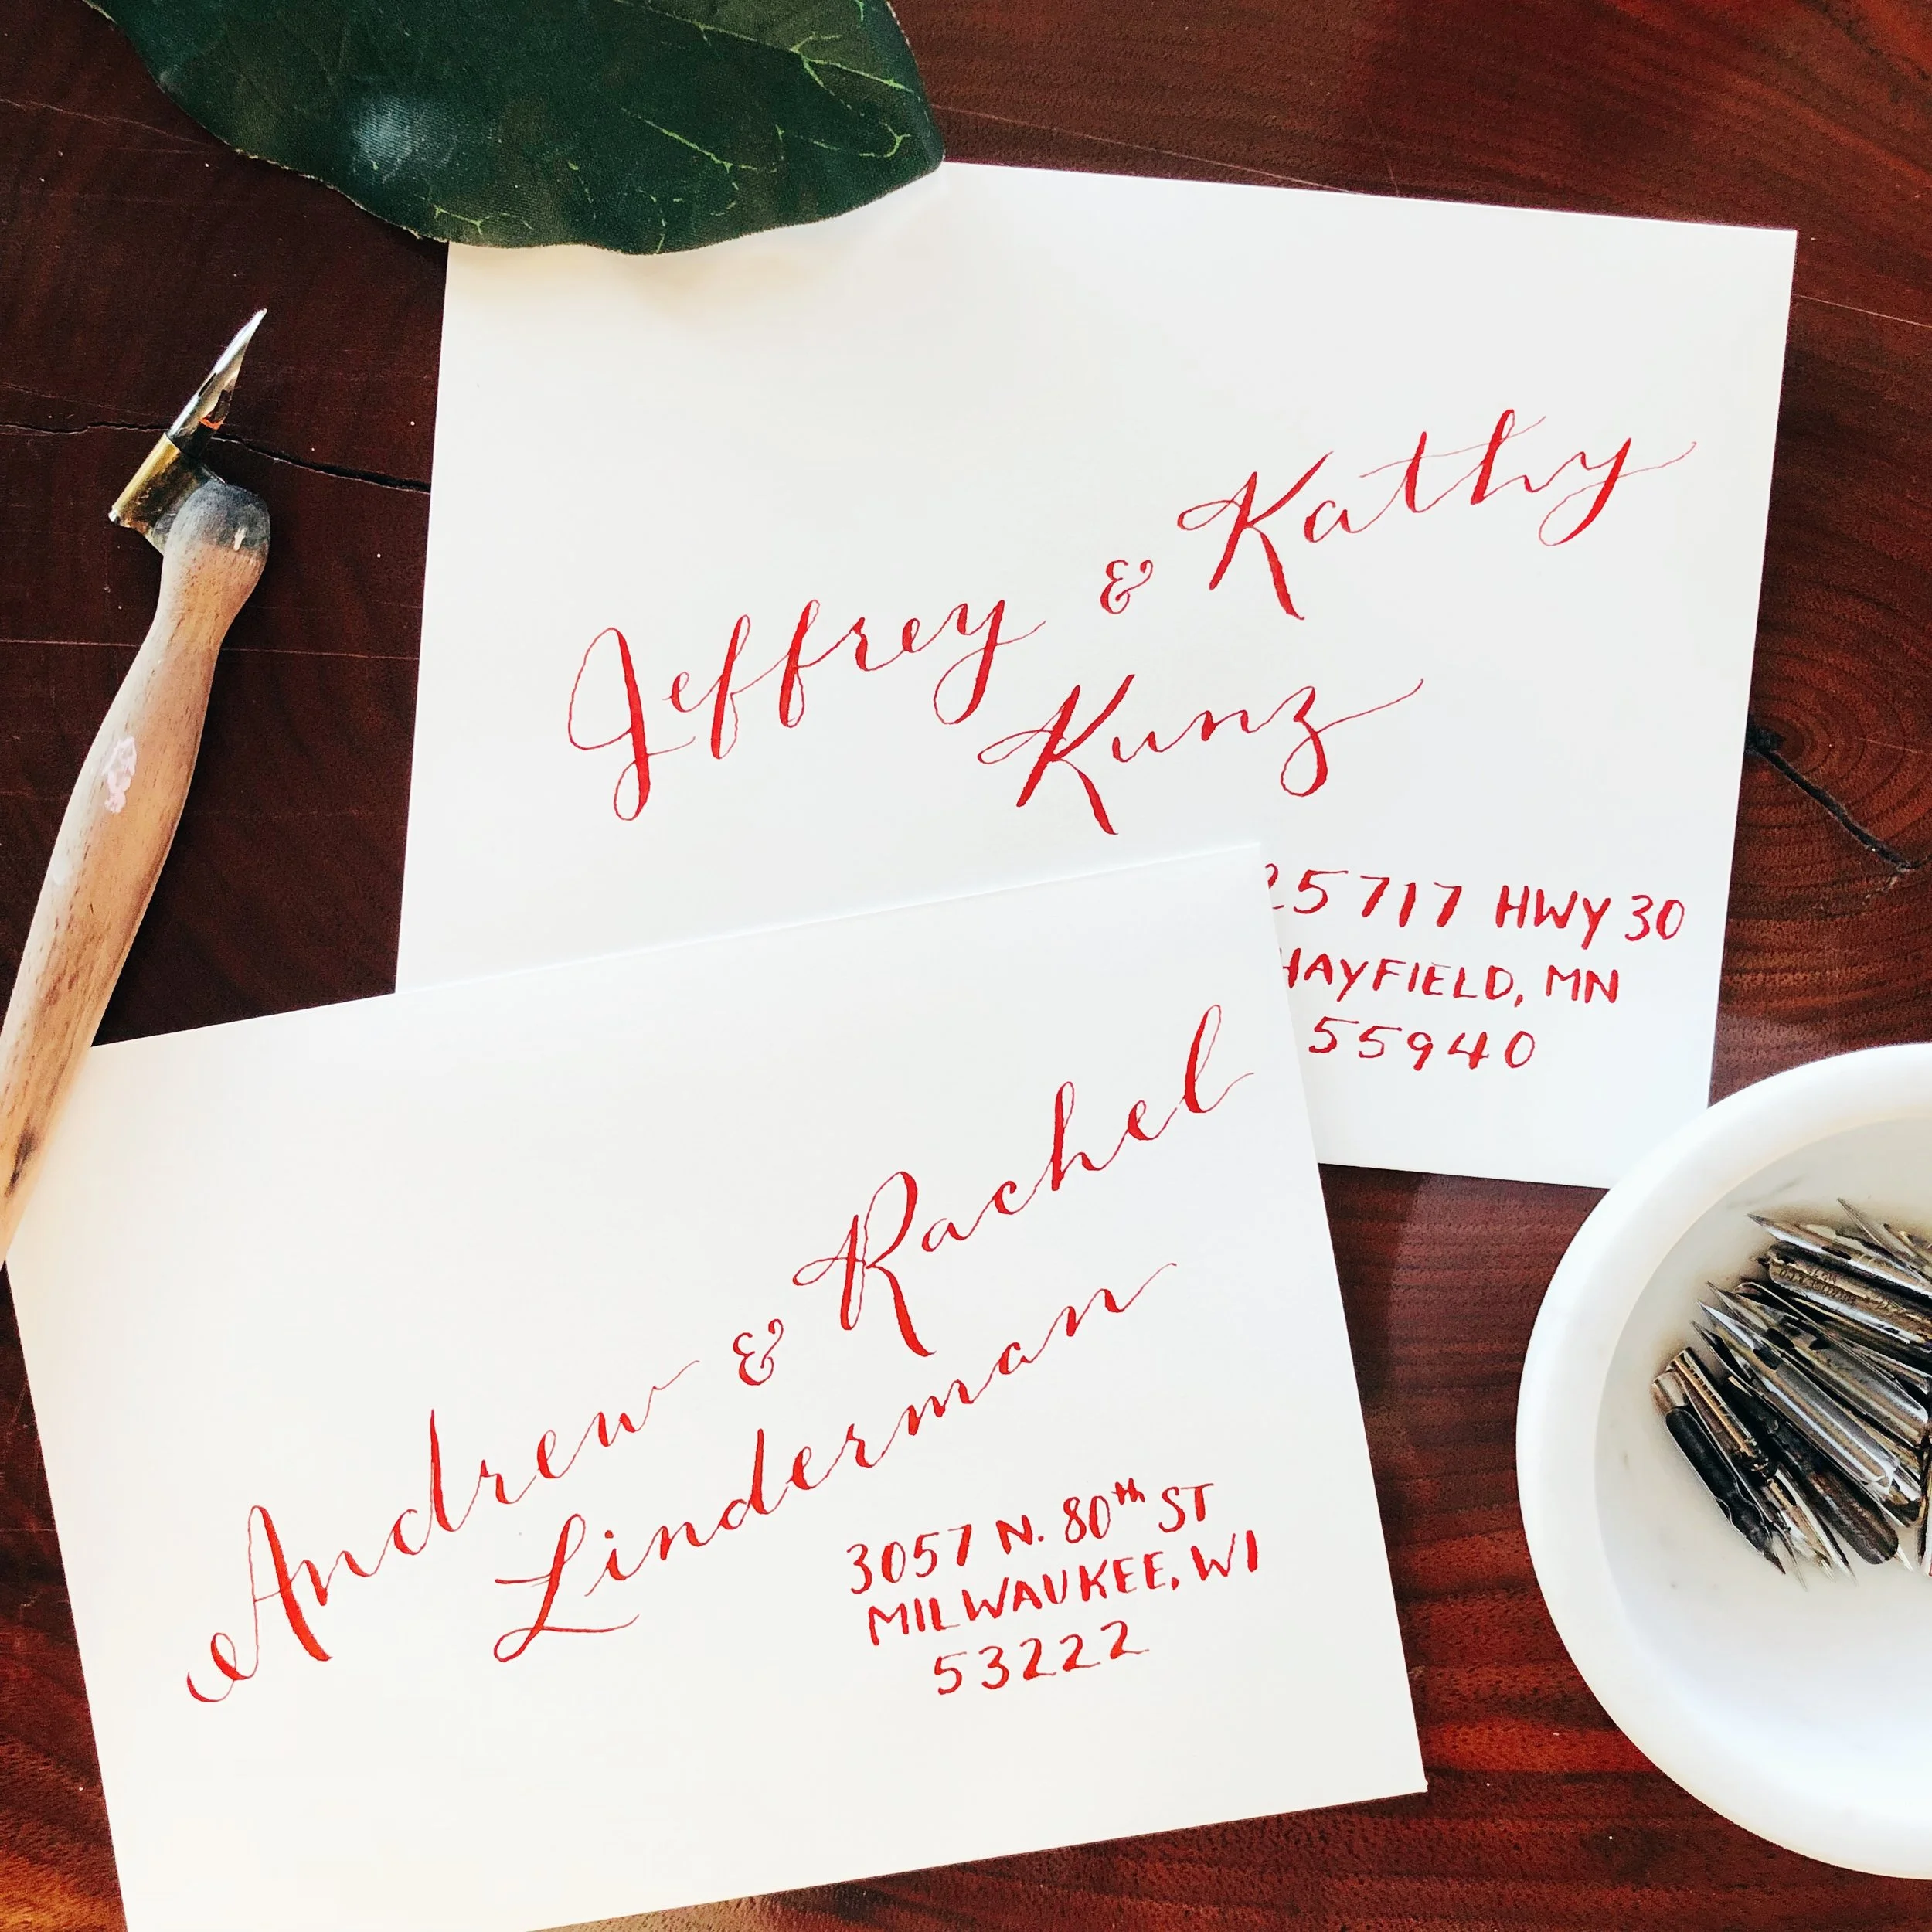 Jeffrey & Kathy
Kunz
25717 HWY 30
HAYFIELD, MN
55940
Andrew & Rachel
Linderman
3057 N. 80th ST
MILWAUKEE, WI
53222